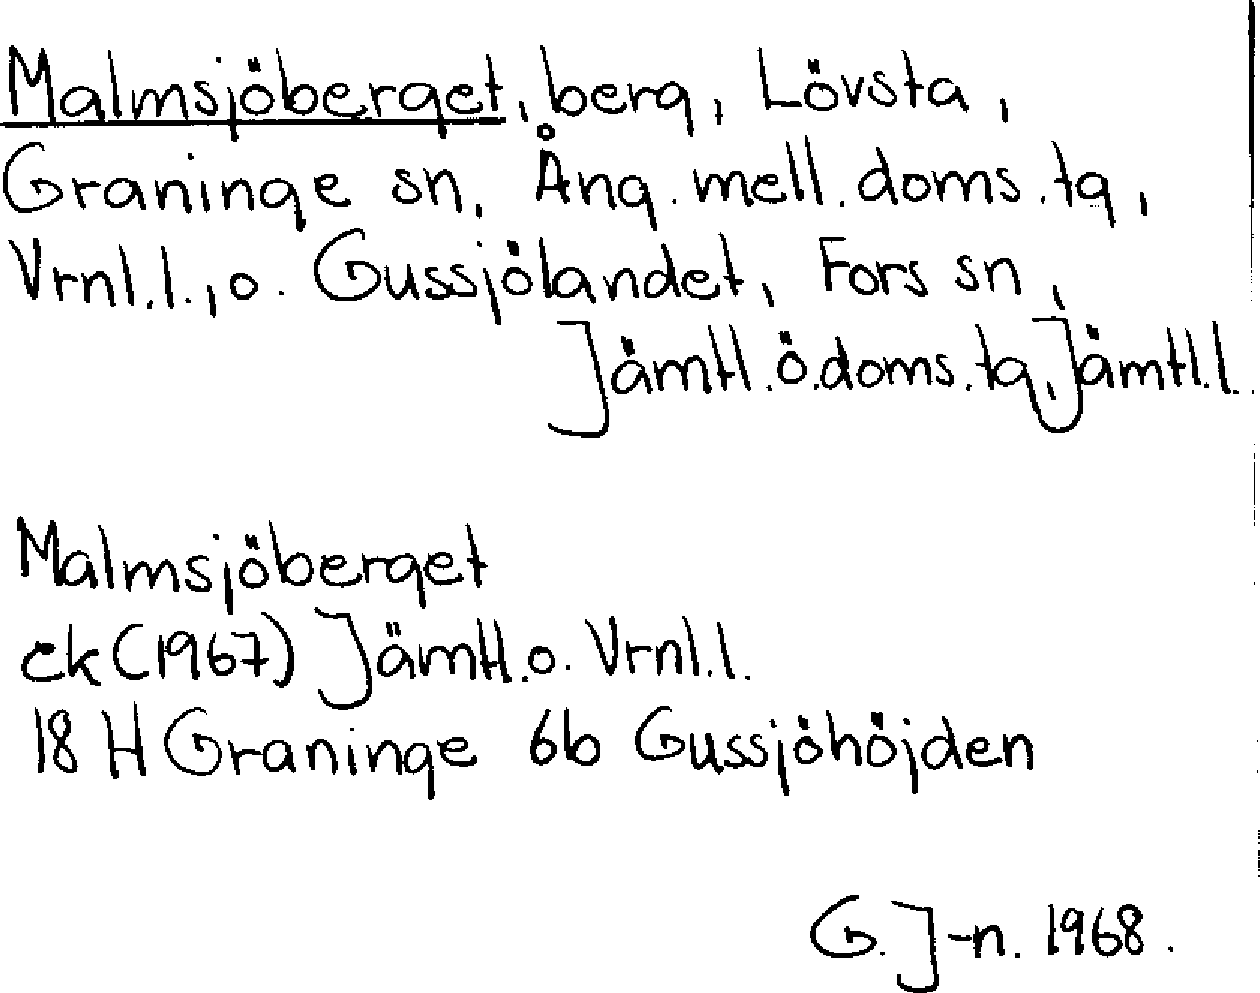 Malmsjöberget, berg, Lövsta,
Graninge sn, Ång. mell. doms. tg,
Vrnl. l., o. Gussjölandet, Fors sn,
Jämtl. ö. doms. tg, Jämtl. l.
Malmsjöberget
ek (1967) Jämtl. o. Vrnl. l.
18 H Graninge 6b Gussjöhöjden
G. J-n. 1968.